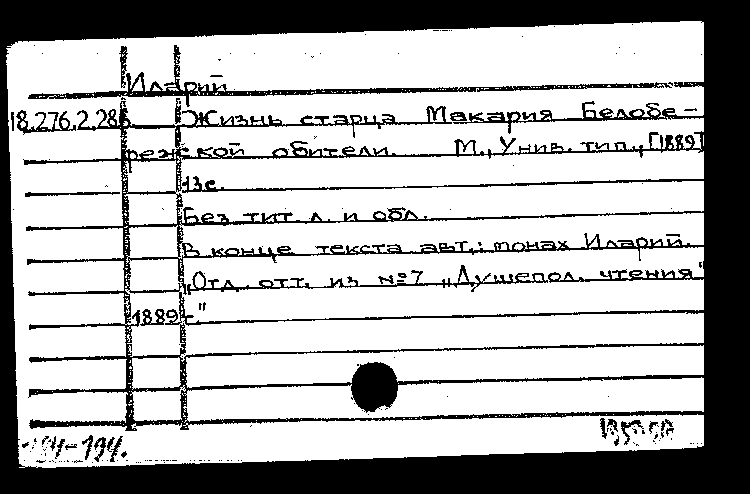 Иларий
18.276.2.286. Жизнь старца Макария Белобе-
режской обители. М., Унив. тип., [1889]
13с.
Без тит. л. и обл.
В конце текста авт.: монах Иларий.
„Отд. отт. из №7 „Душепол. чтения"
1889 г."
194-194.